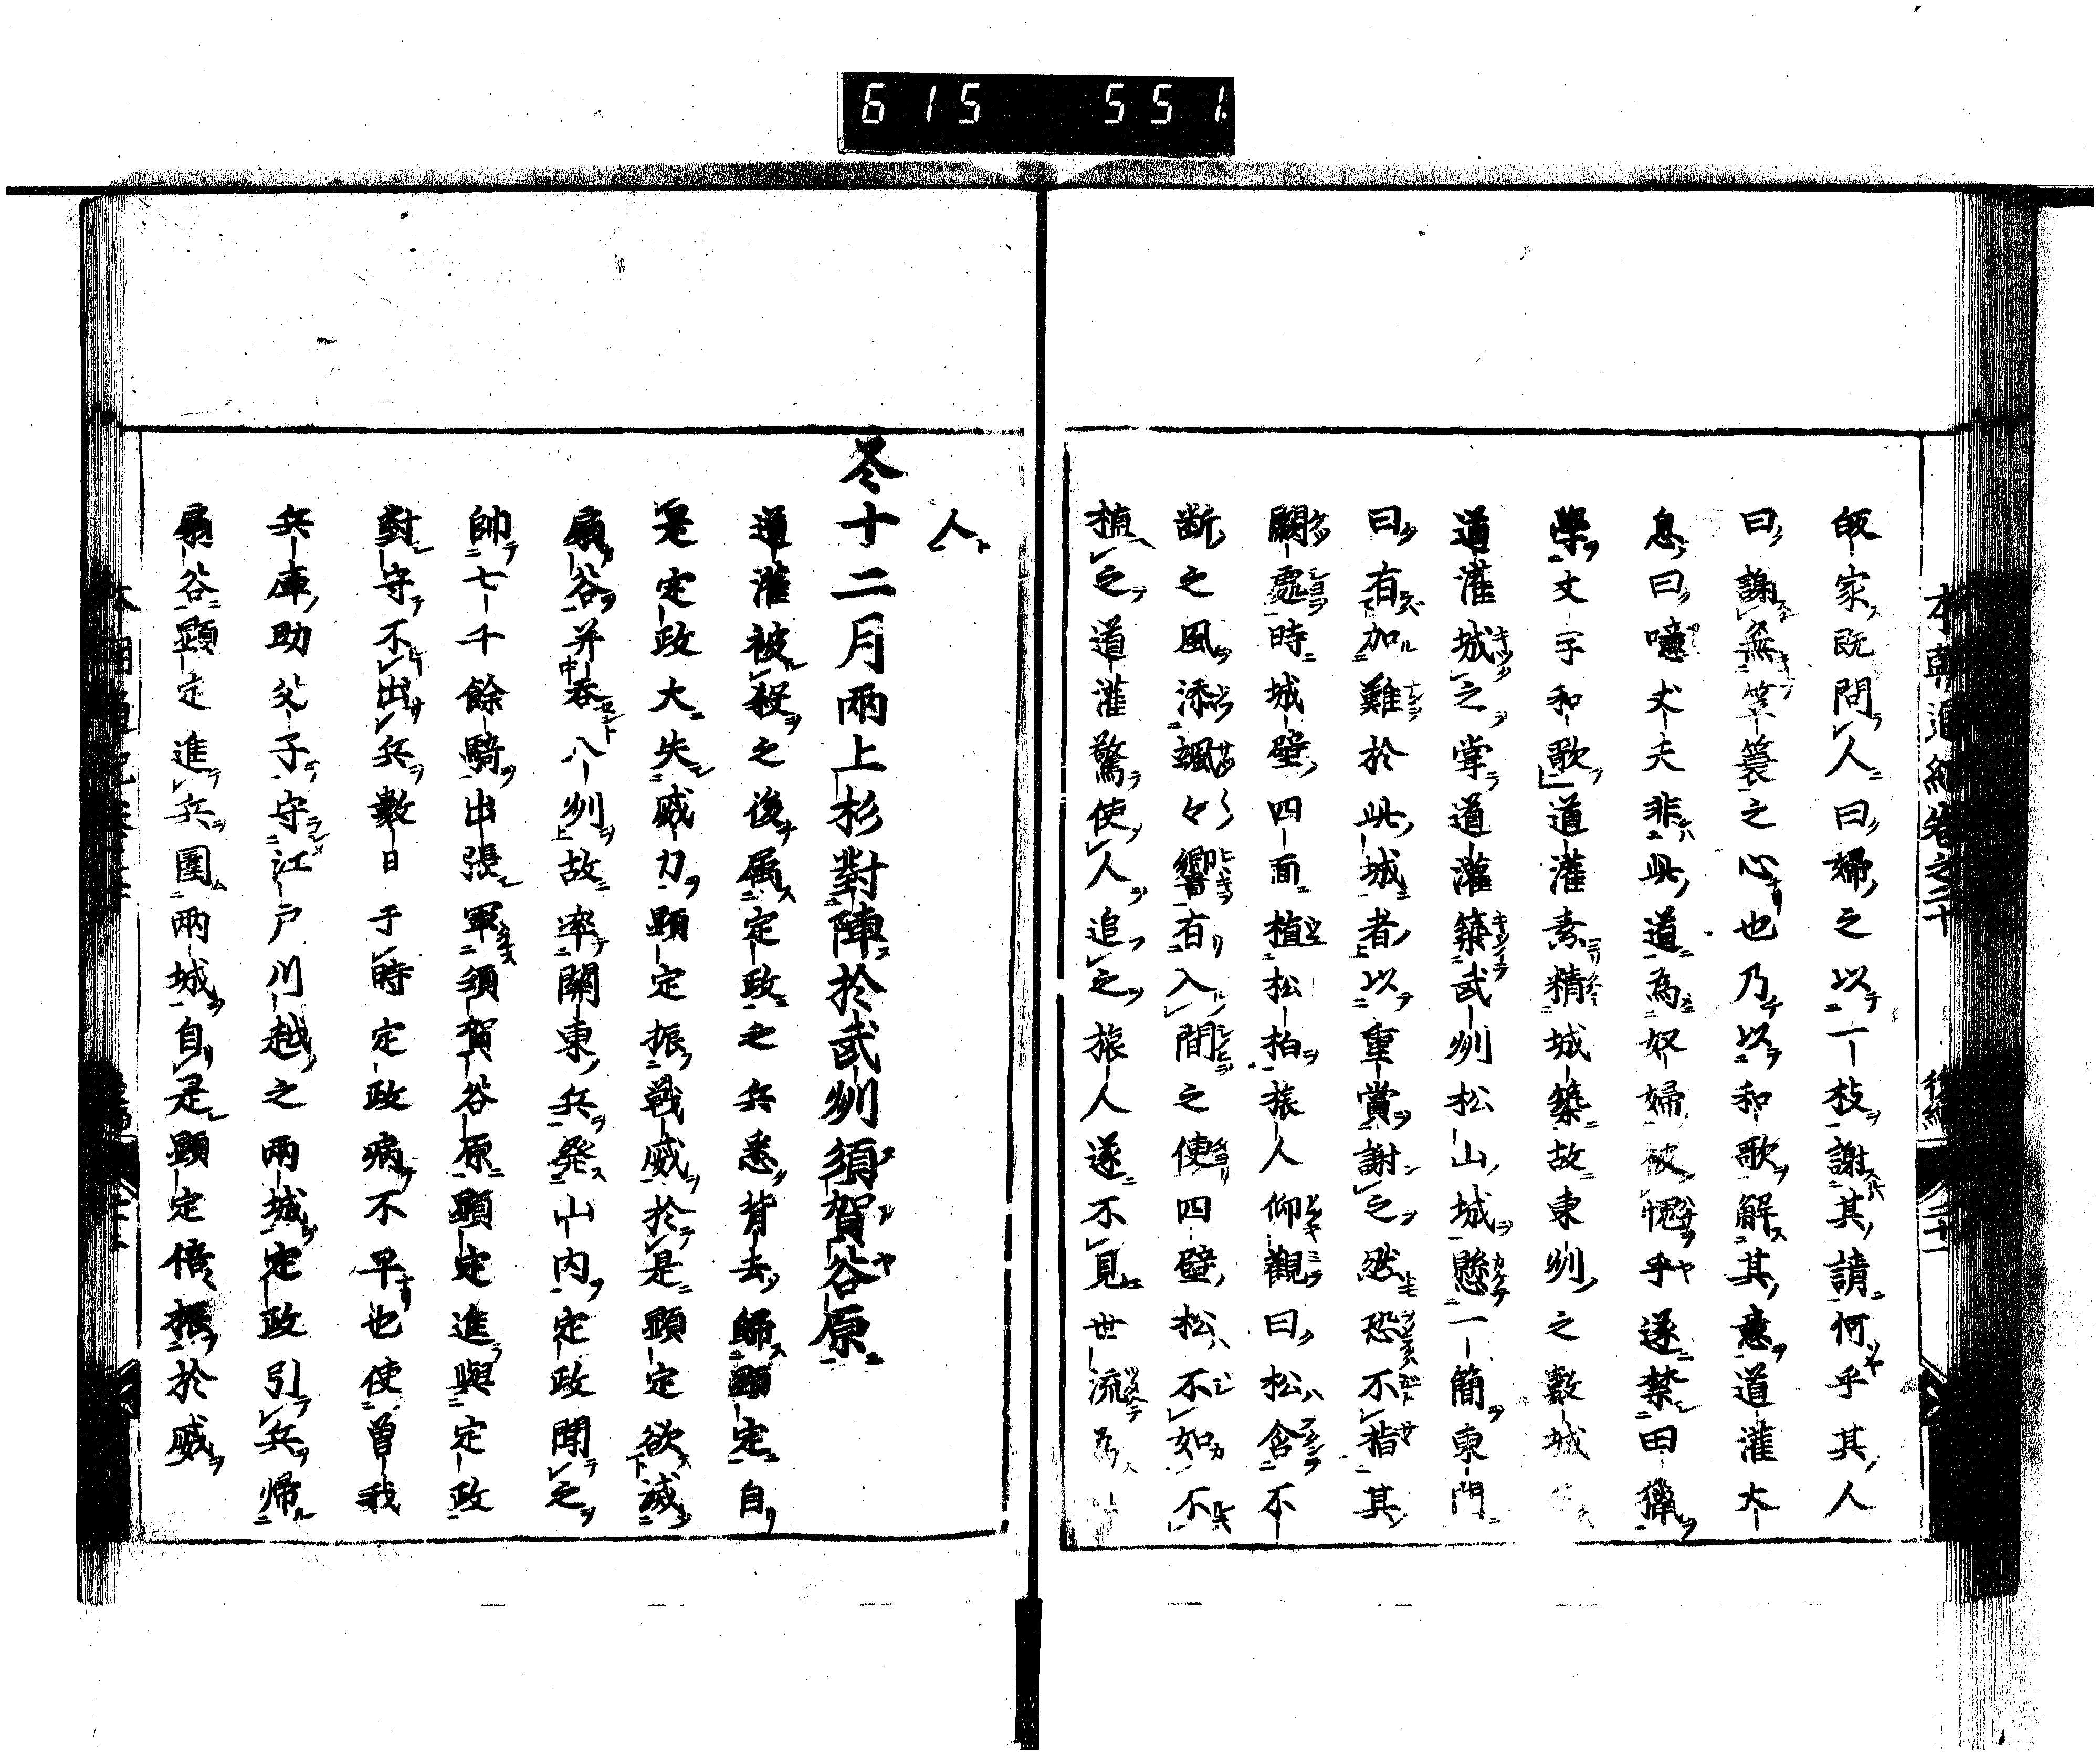 615 551.
本朝通紀卷之二十 後編 二十一
皈家既問人曰婦之以一枝謝其請何乎其人
曰謝無笠簑之心也乃以和歌解其意道灌大
息曰噫丈夫非此道為奴婦被愧乎遂禁田獵
學文字和歌道灌素精城築故東州之數城
道灌城之掌道灌築武州松山城懸一簡東門
曰有加難於此城者以重賞謝之然恐不指其
闕處時城壁四面植松柏旅人仰觀曰松含不
斷之風添颯々響有入間之使四壁松不如不
植之道灌驚使人追之旅人遂不見世流為
人
冬十二月兩上杉對陣於武州須賀谷原
道灌被殺之後属定政之兵悉背去歸顯定自
是定政大失威力顯定振戦威於是顯定欲滅
扇谷并吞八州故率關東兵発山内定政聞之
帥七千餘騎出張軍須賀谷原顯定進與定政
對守不出兵數日于時定政病不早也使曽我
兵庫助父子守江戸川越之兩城定政引兵帰
扇谷顕定進兵圍兩城自是顕定倍振於威